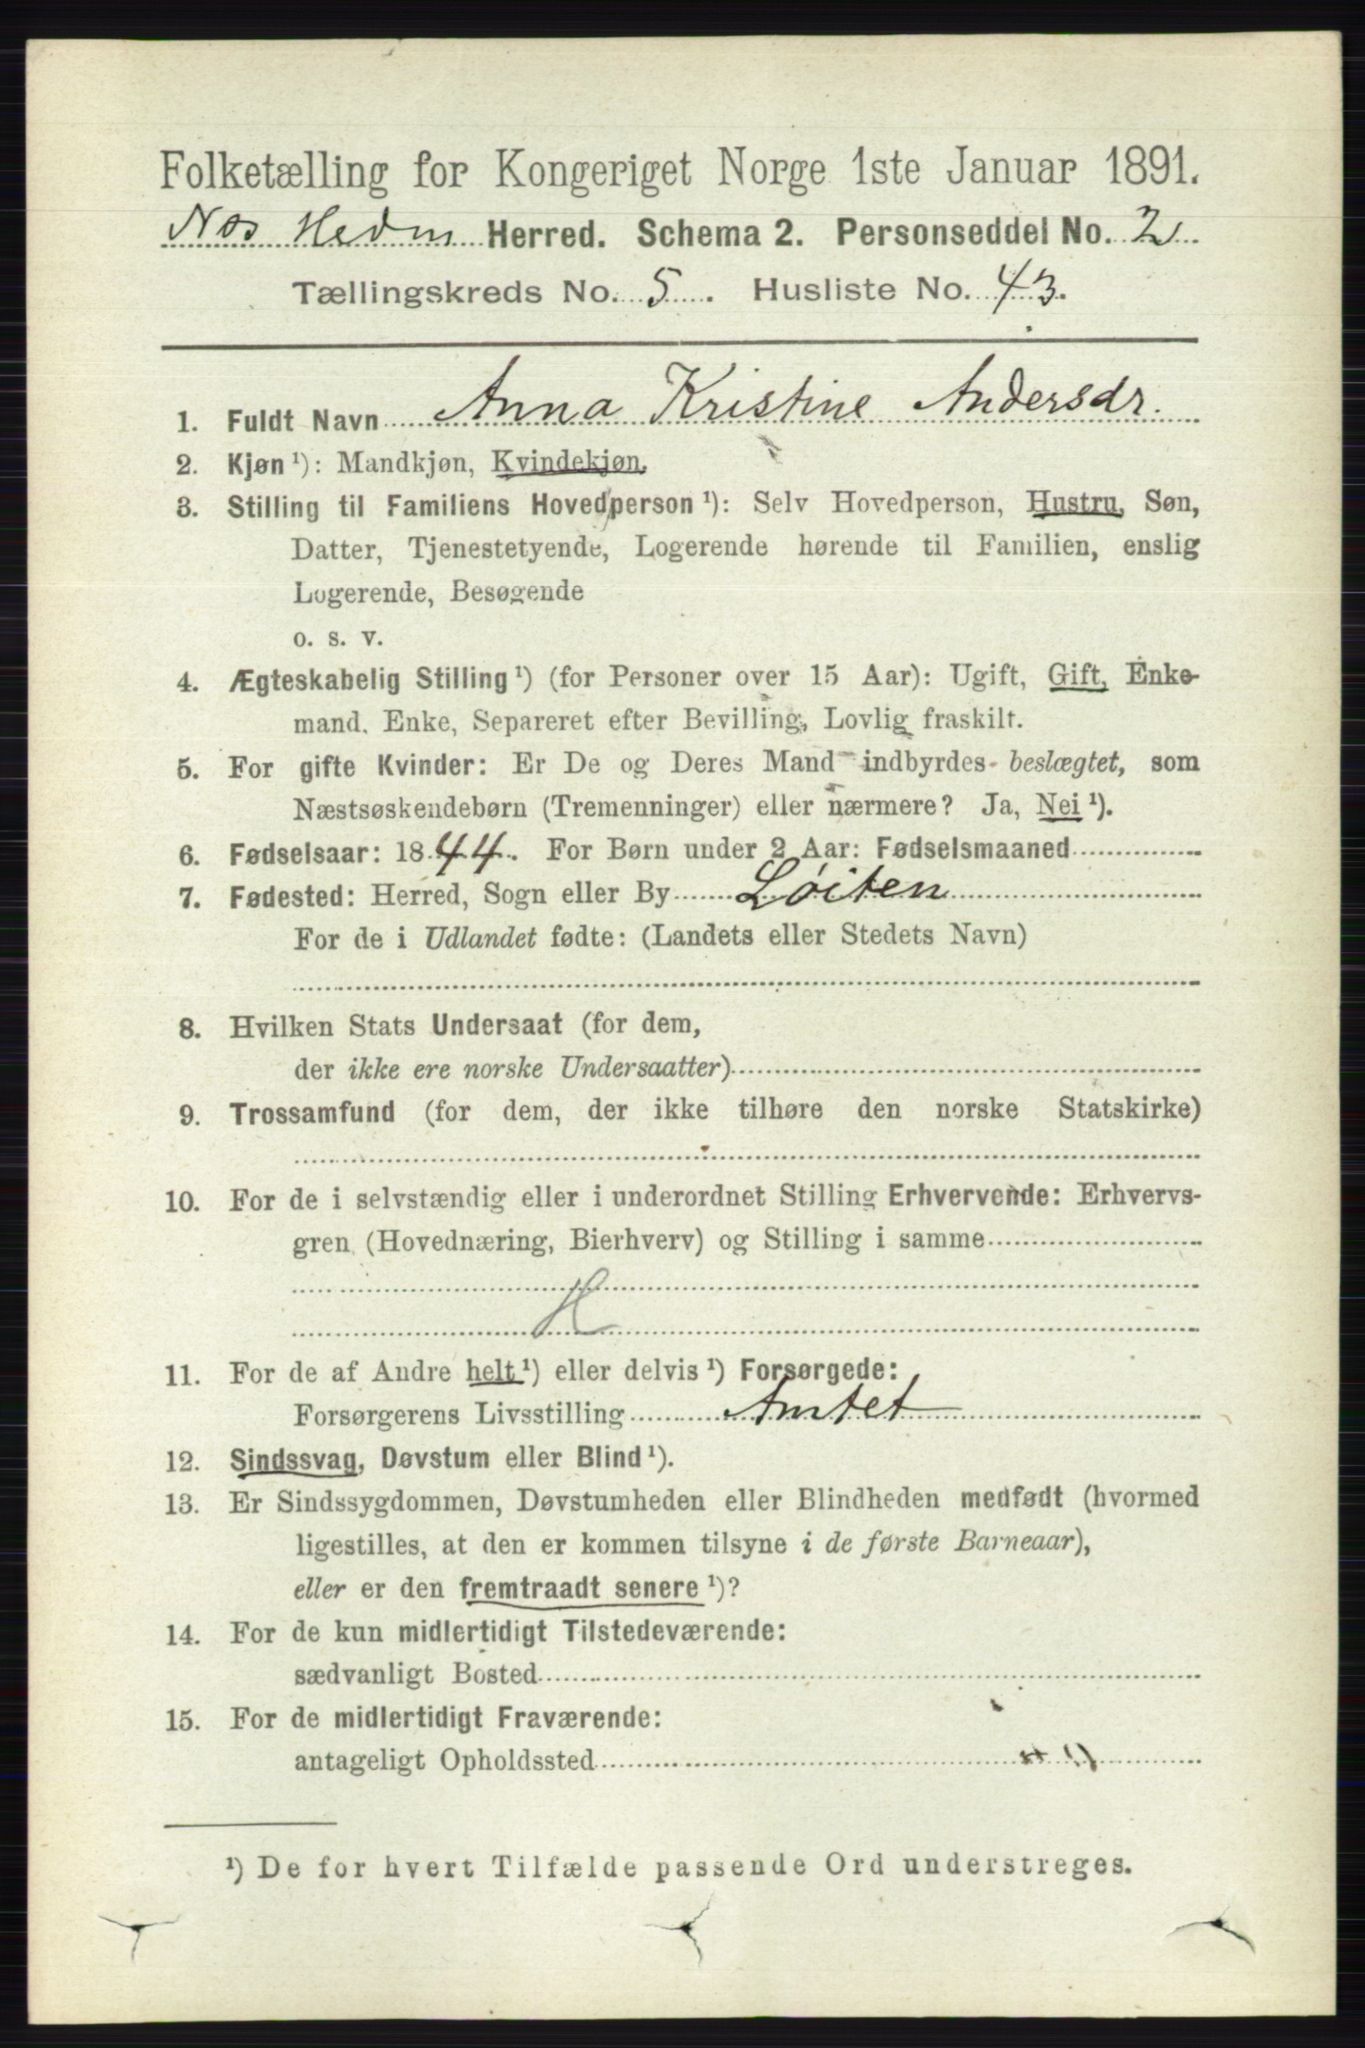 Folketælling for Kongeriget Norge 1ste Januar 1891.
Nes Hedm Herred. Schema 2. Personseddel No. 2
Tællingskreds No. 5. Husliste No. 43.
1. Fuldt Navn Anna Kristine Andersdr.
2. Kjøn ¹): Mandkjøn, Kvindekjøn.
3. Stilling til Familiens Hovedperson ¹): Selv Hovedperson, Hustru, Søn,
Datter, Tjenestetyende, Logerende hørende til Familien, enslig
Logerende, Besøgende
o. s. v.
4. Ægteskabelig Stilling ¹) (for Personer over 15 Aar): Ugift, Gift, Enke-
mand, Enke, Separeret efter Bevilling, Lovlig fraskilt.
5. For gifte Kvinder: Er De og Deres Mand indbyrdes beslægtet, som
Næstsøskendebørn (Tremenninger) eller nærmere? Ja, Nei ¹).
6. Fødselsaar: 1844. For Børn under 2 Aar: Fødselsmaaned
7. Fødested: Herred, Sogn eller By Løiten
For de i Udlandet fødte: (Landets eller Stedets Navn)
8. Hvilken Stats Undersaat (for dem,
der ikke ere norske Undersaatter)
9. Trossamfund (for dem, der ikke tilhøre den norske Statskirke)
10. For de i selvstændig eller i underordnet Stilling Erhvervende: Erhvervs-
gren (Hovednæring, Bierhverv) og Stilling i samme
H
11. For de af Andre helt ¹) eller delvis ¹) Forsørgede:
Forsørgerens Livsstilling Amtet
12. Sindssvag, Døvstum eller Blind ¹).
13. Er Sindssygdommen, Døvstumheden eller Blindheden medfødt (hvormed
ligestilles, at den er kommen tilsyne i de første Barneaar),
eller er den fremtraadt senere ¹)?
14. For de kun midlertidigt Tilstedeværende:
sædvanligt Bosted
15. For de midlertidigt Fraværende:
antageligt Opholdssted
¹) De for hvert Tilfælde passende Ord understreges.